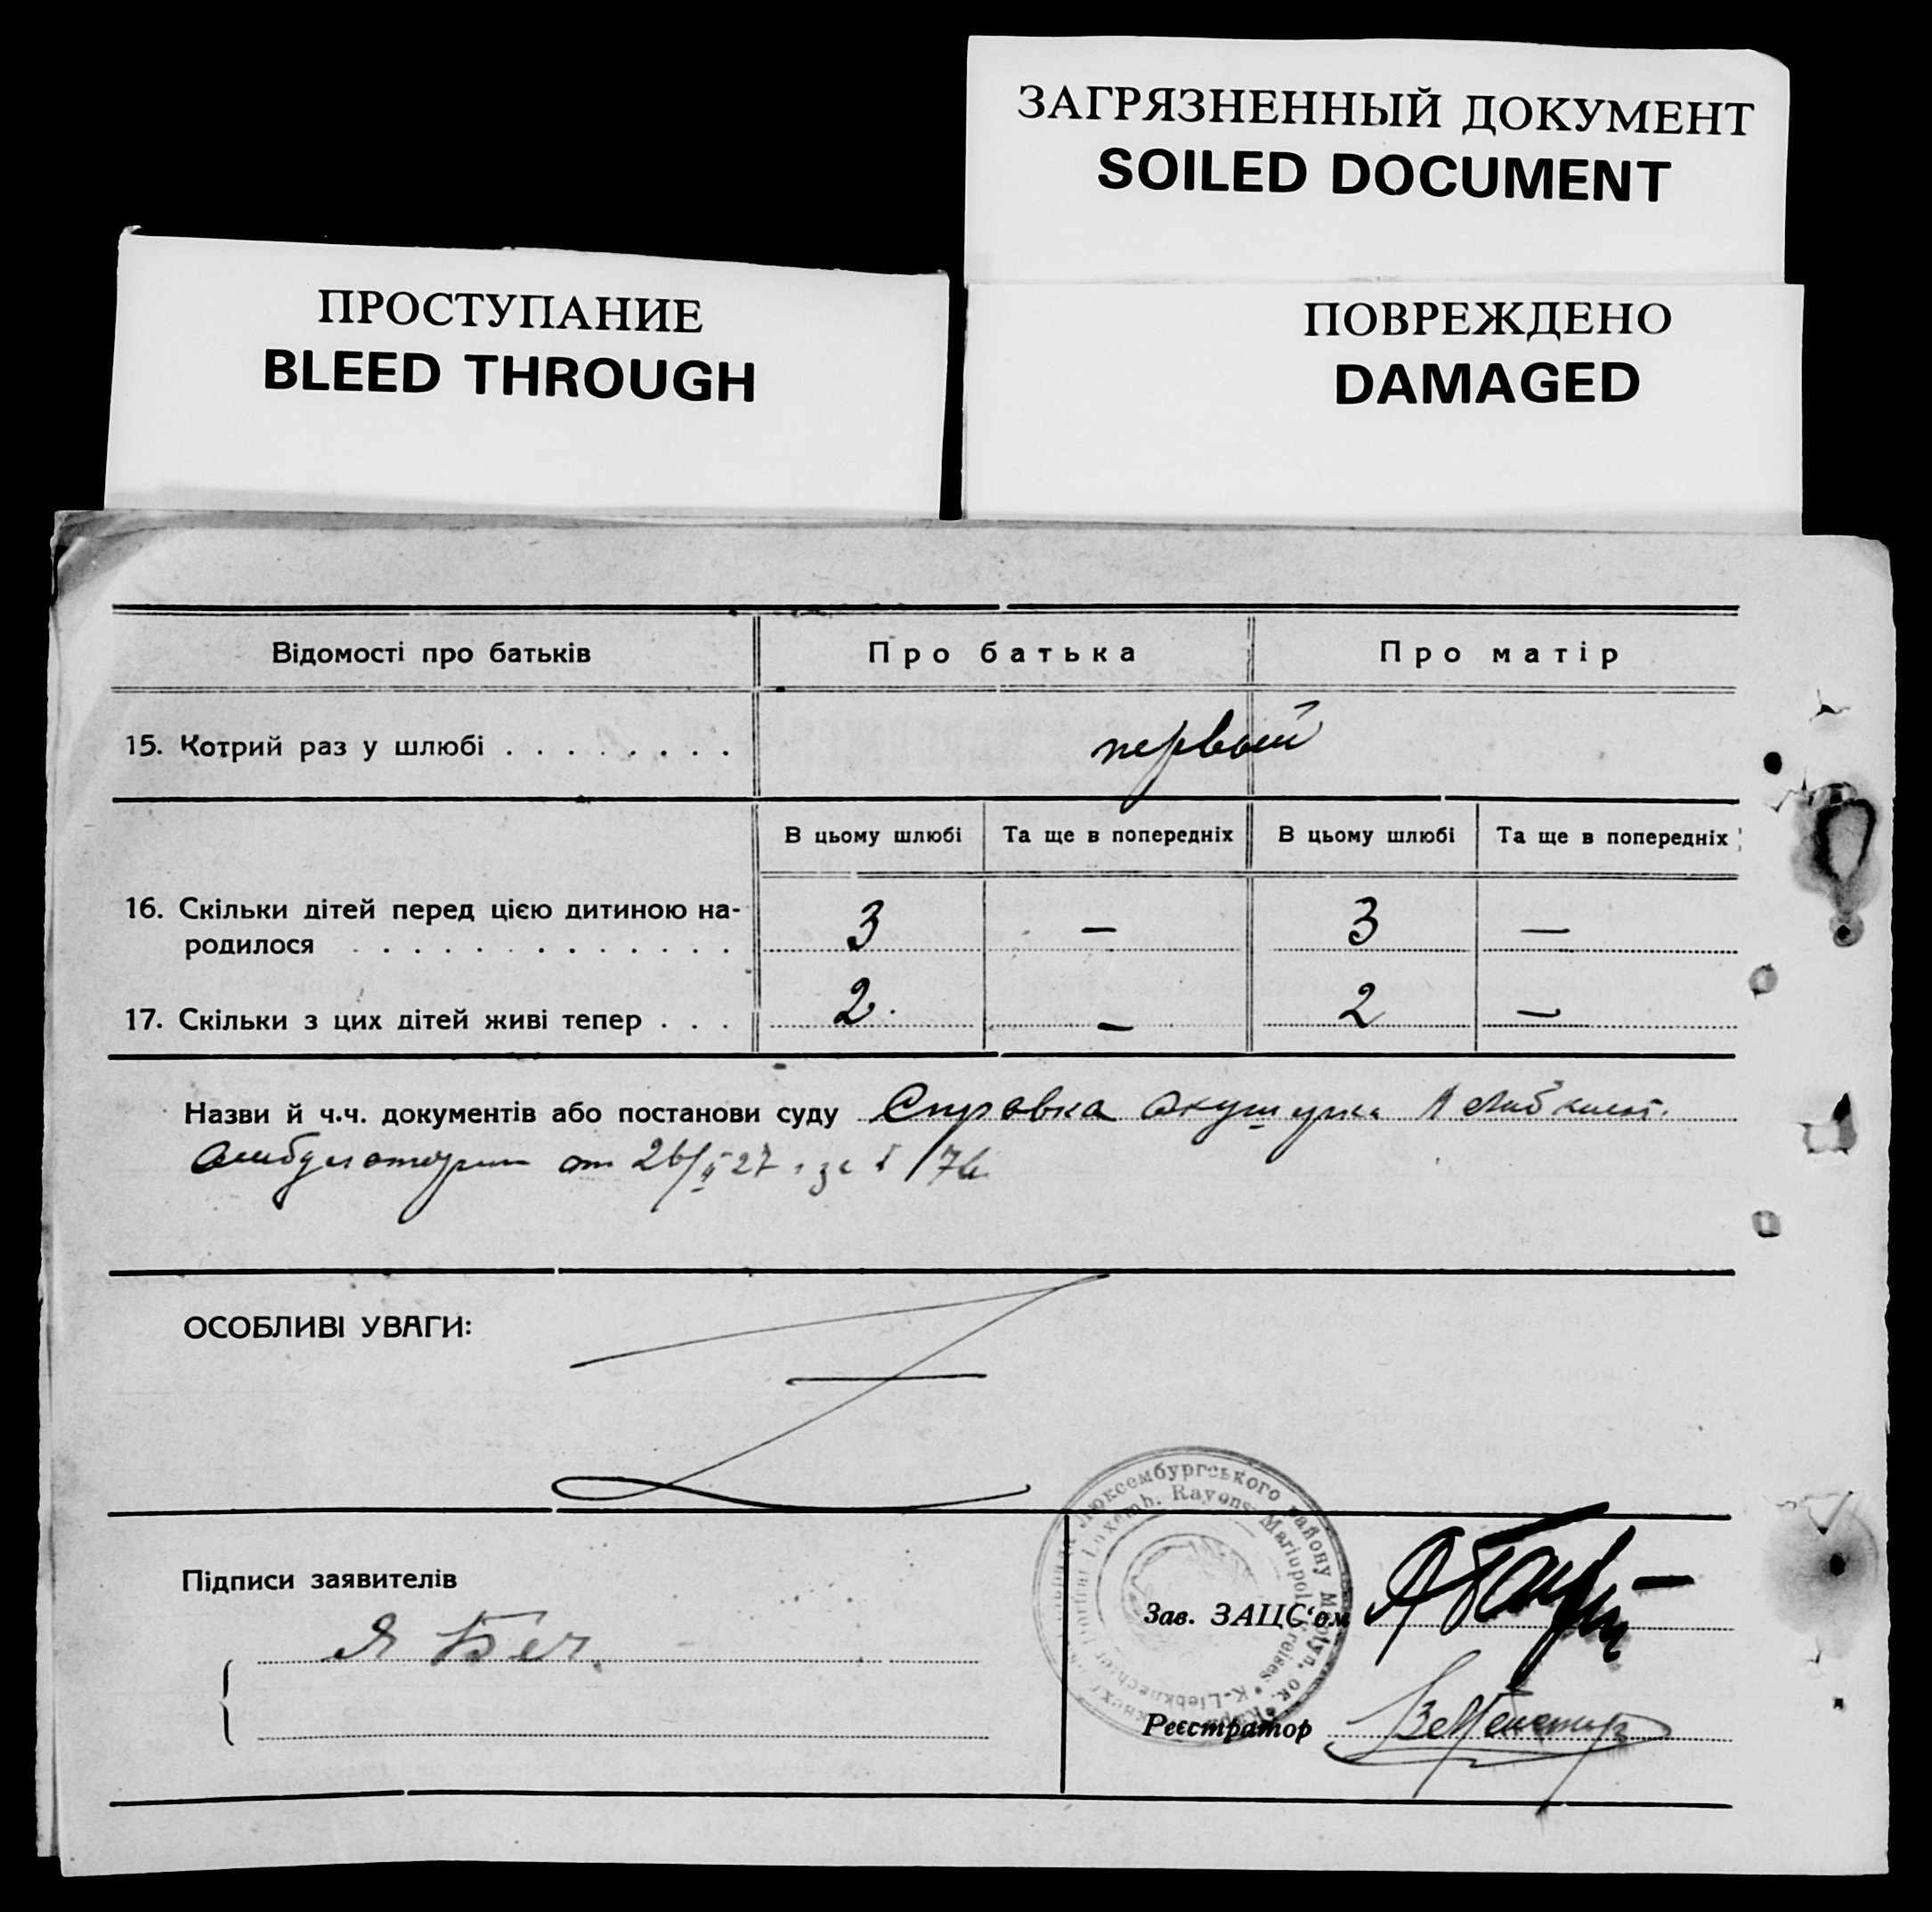 ЗАГРЯЗНЕННЫЙ ДОКУМЕНТ
SOILED DOCUMENT
ПРОСТУПАНИЕ
BLEED THROUGH
ПОВРЕЖДЕНО
DAMAGED
Відомості про батьків Про батька Про матір
15. Котрий раз у шлюбі . . . . . . . . первый
В цьому шлюбі Та ще в попередніх В цьому шлюбі Та ще в попередніх
16. Скільки дітей перед цією дитиною на-
родилося . . . . . . . . . . . . . 3 — 3 —
17. Скільки з цих дітей живі тепер . . . 2 — 2 —
Назви й ч.ч. документів або постанови суду Справка акушерки
Амбулатории от 26/II 27 за № 176
ОСОБЛИВІ УВАГИ:
Люксембургського району Маріуп. ок.
Luxemb. Rayons Mariupol Kreises * K-Liebknechter
Підписи заявителів
Я Беч.
Зав. ЗАЦС'ом
Реєстратор